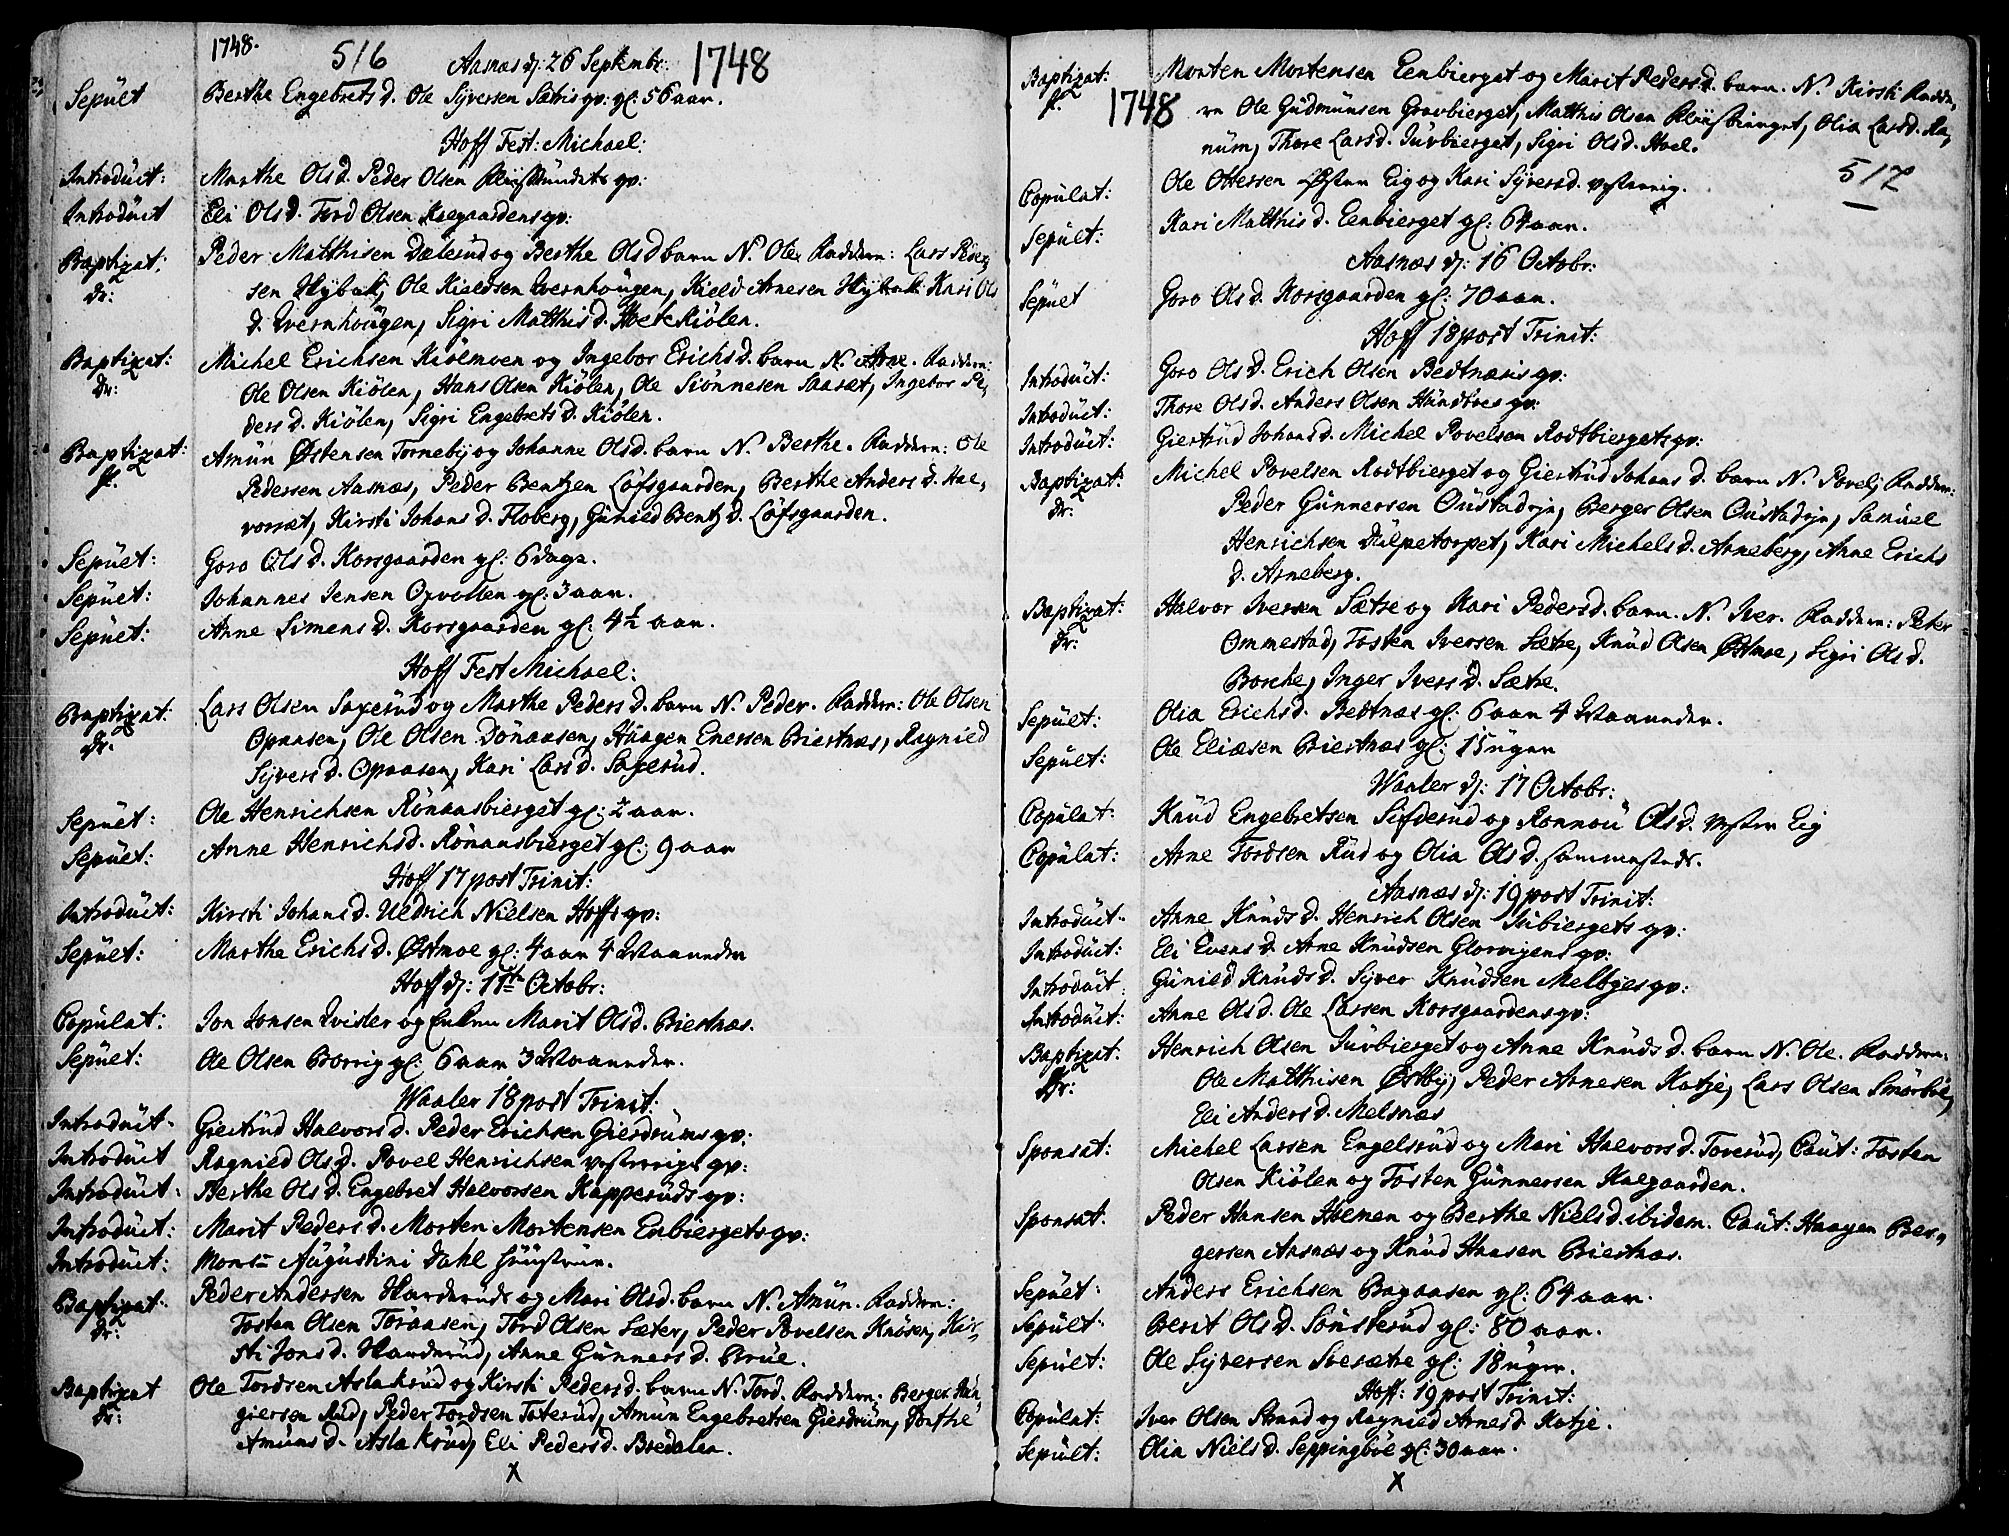 1748.
516
Aasnæs dj: 26 Septembr: 1748
Sepult Berthe Engebretsd. Ole Syversen Sætris qv: gl: 56 aar.
Hoff Fest: Michael:
Introduct: Marthe Olsd. Peder Olsen qv:
Introduct Eli Olsd. Tord Olsen Kalgaardens qv:
Baptizat: Peder Matthisen Dælerud og Berthe Olsd barn N. Ole. Faddere: Lars Peder
dr: sen Nybak, Ole Kieldsen Qvernhougen, Kield Arnesen Nybak Kari Ols
d. Qvernhougen, Sigri Matthisd. Kiølen.
Baptizat: Michel Erichsen Kiølmoen og Ingebor Erichsd. barn N. Arne. Faddere:
dr: Ole Olsen Kiølen, Hans Olsen Kiølen, Ole Siønnesen Saaræt, Ingebor Pe,
dersd. Kiølen, Sigri Engebretsd. Kiølen.
Baptizat: Amun Østensen Torneby og Johanne Olsd. barn N. Berthe. Faddere: Ole
p. Pedersen Aasnæs, Peder Bentzen Løfsgaarden, Berthe Andersd. Hal,
vorset, Kirsti Johansd. Floberg, Gunild Bentzd. Løfsgaarden.
Sepult: Goro Olsd. Korsgaarden gl: 6 dage.
Sepult: Johannes Jensen Opvollen gl: 3 aar.
Sepult: Anne Simensd. Korsgaarden gl: 4½ aar.
Hoff Fest Michael:
Baptizat: Lars Olsen Saxerud og Marthe Pedersd. barn N. Peder. Faddere: Ole Olsen
dr. Opaasen, Ole Olsen Dønaasen, Haagen Enersen Biertnæs, Ragnild
Syversd. Opaasen, Kari Larsd. Saxerud.
Sepult: Ole Henrichsen Rønaasbierget gl: ½ aar.
Sepult: Anne Henrichsd. Rønaasbierget gl: 9 aar
Hoff 17 post Trinit:
Introduct: Kirsti Johansd. Uldrich Nielsen Hoffs qv:
Sepult: Marthe Erichsd. Østmoe gl: 4 aar 4 Maaneder
Hoff dj: 11te Octobr:
Copulat: Jon Jonsen Qvisler og Enken Marit Olsd. Biertnæs.
Sepult: Ole Olsen Borrig gl: 6 aar 3 Maaneder.
Waaler 18 post Trinit:
Introduct. Giertrud Halvorsd. Peder Erichsen Gierdrums qv:
Introduct Ragnild Olsd. Povel Henrichsen qv:
Introduct: Berthe Olsd. Engebret Halvorsen Kapperuds qv:
Introduct: Marit Pedersd. Morten Mortensen Enbiergets qv:
Introduct: Monsr Augustini Dahl Huustrue.
Baptizat. Peder Andersen Harderud og Mari Olsd. barn N. Amun. Faddere:
dr: Tosten Olsen Toraasen, Tord Olsen Sæter, Peder Povelsen Knøsen, Kir,
sti Jonsd. Harderud, Anne Gunnersd. Brue.
Baptizat Ole Tordsen Aslakrud og Kirsti Pedersd. barn N. Tord. Faddere: Berger Han
dr: giersen Rud, Peder Tordsen Toterud, Amun Engebretsen Gierdrum, Dorthe
Amunsd. Aslakrud, Eli Pedersd. Bredalen.
x
Baptizat: Morten Mortensen Eenbierget og Marit Pedersd. barn. N. Kirsti Fadde,
p. 1748 re Ole Gudmunsen Gravbierget, Matthis Olsen, Olia Larsd. Ra,
num, Thore Larsd. Juvbierget, Sigri Olsd. Hoel.
517
Copulat: Ole Ottersen Østen Eig og Kari Syversd. Vestereig.
Sepult: Kari Matthisd. Eenbierget gl: 64 aar.
Aasnæs dj: 16 Octobr:
Sepult Goro Olsd. Korsgaarden gl: 70 aar.
Hoff 18 post Trinit:
Introduct: Goro Olsd. Erich Olsen Bedtnæsis qv:
Introduct: Thore Olsd. Anders Olsen qv:
Introduct: Giertrud Johansd. Michel Povelsen Rodtbiergets qv:
Baptizat: Michel Povelsen Rodtbierget og Giertrud Johansd. barn N. Povel, Faddere:
dr: Peder Gunnersen Oustadeje, Berger Olsen Oustadeje, Samuel
Henrichsen Dulpetorpet, Kari Michelsd. Arneberg, Anne Erichs
d. Arneberg.
Baptizat: Halvor Iversen Sætre og Kari Pedersd. barn. N. Iver. Faddere: Peter
dr: Ommestad, Tosten Iversen Sætre, Knud Olsen Østmoe, Sigri Olsd.
Borche, Inger Iversd. Sætre.
Sepult: Olia Erichsd. Bedtnæs gl: 6 aar 4 Maaneder.
Sepult: Ole Eliæsen Biertnæs gl: 15 uger
Waaler dj: 17 Octobr:
Copulat: Knud Engebretsen Sifderud og Ronnou Olsd. Vester Eig
Copulat: Arne Tordsen Rud og Olia Olsd. sammesteds.
Aasnæs dj: 19 post Trinit:
Introduct. Anne Knudsd. Henrich Olsen Jubiergets qv:
Introduct: Eli Evensd. Arne Knudsen Glorvigens qv:
Introduct Gunild Knudsd. Syver Knudsen Melbyes qv:
Introduct: Anne Olsd. Ole Larsen Korsgaardens qv:
Baptizat: Henrich Olsen Juvbierget og Anne Knudsd. barn N. Ole. Faddere.
dr: Ole Matthisen Østby, Peder Arnesen Katje, Lars Olsen Smørbøl,
Eli Andersd. Melsnæs
Sponsat: Michel Larsen Engelsrud og Mari Halvorsd. Toverud, Caut: Tosten
Olsen Kiølen og Tosten Gunnersen Kalgaarden.
Sponsat. Peder Hansen Holmen og Berthe Nielsd. ibidem. Caut: Haagen Ber,
gersen Aasnæs og Knud Hansen Biertnæs.
Sepult: Anders Erichsen Bagaasen gl: 64 aar.
Sepult: Berit Olsd. Sønsterud gl: 80 aar.
Sepult: Ole Syversen Svesætre gl: 18 uger.
Hoff: 19 post Trinit:
Copulat: Iver Olsen Strand og Ragnild Arnesd. Katje.
Sepult: Olia Nielsd. Seppingbøl gl: 30 aar.
x